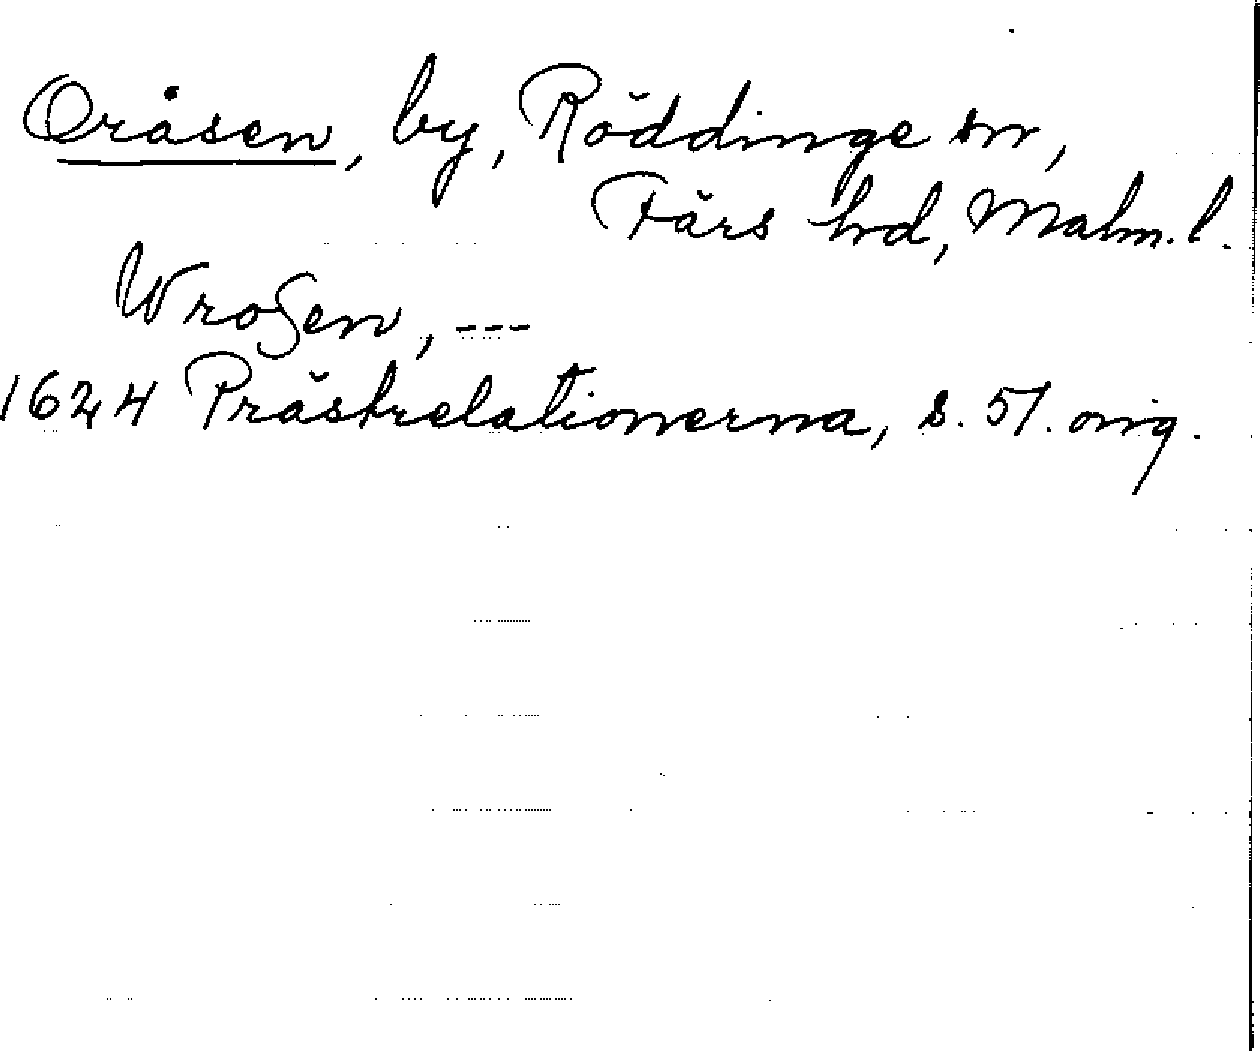 Oråsen, by, Röddinge sn,
Färs hd, Malm. l.
Wrosen, ---
1624 Prästrelationerna, s. 51. orig.